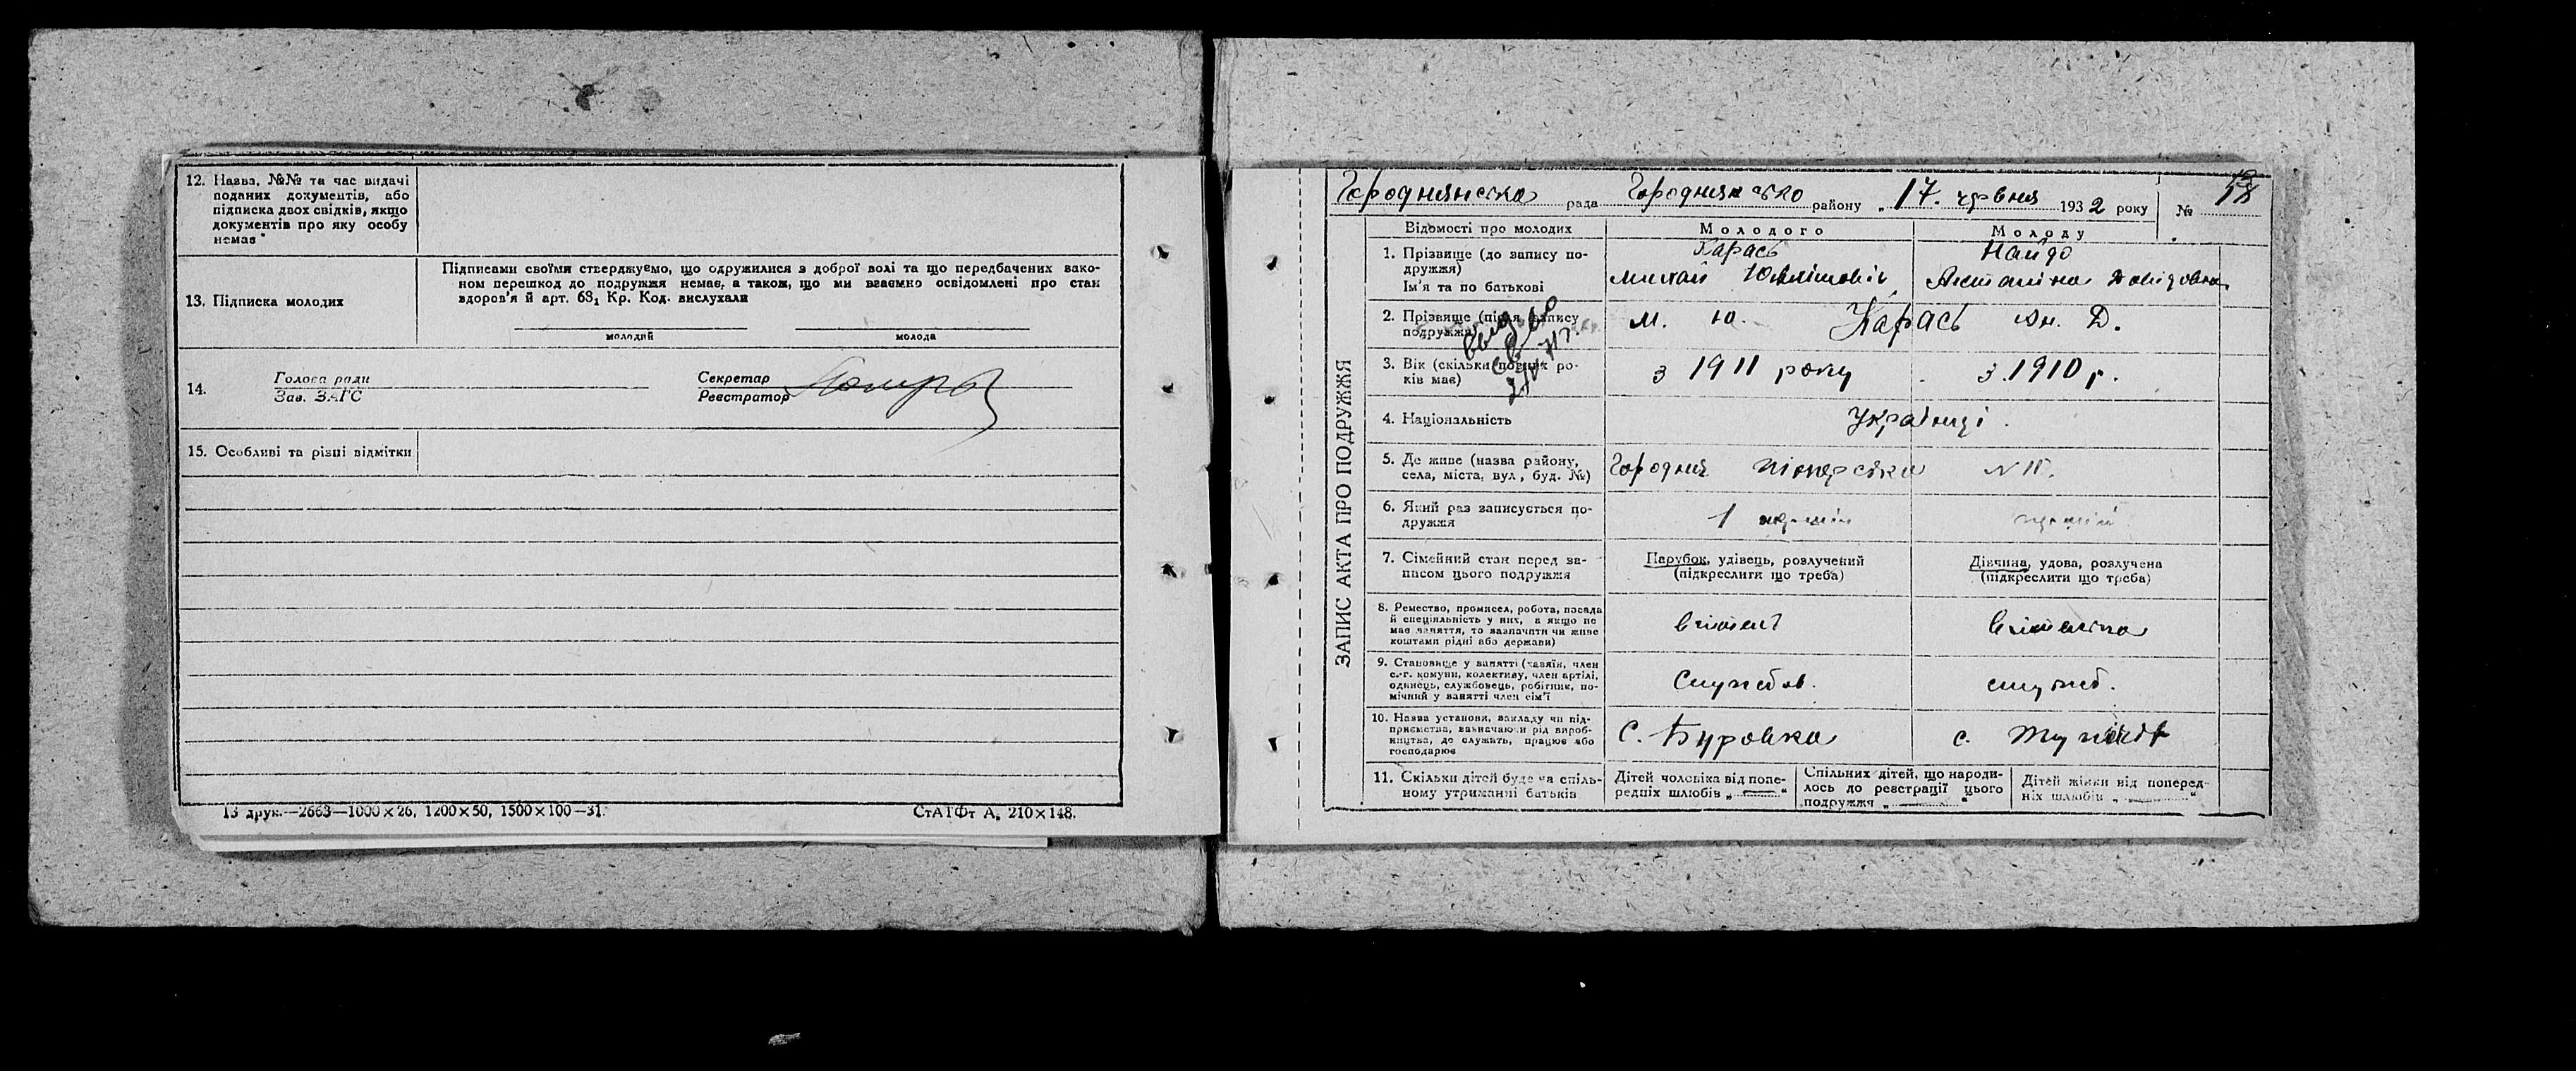 12. Назва, №№ та час видачі
поданих документів, або
підписка двох свідків, якщо
документів про яку особу
немає
13. Підписка молодих
Підписами своїми стверджуємо, що одружилися з доброї волі та що передбачених зако-
ном перешкод до подружжя немає, а також, що ми взаємно освідомлені про стан
здоров'я й арт. 68₁ Кр. Код. вислухали
молодий молода
14. Голова ради
Зав. ЗАГС
Секретар
Реєстратор
15. Особливі та різні відмітки
13 друк.—2663—1000×26, 1200×50, 1500×100—31.
СтАТФт А₅ 210×148.
ЗАПИС АКТА ПРО ПОДРУЖЖЯ
Городнянська рада Городнянсько району „17. червня 1932 року № 18
Відомості про молодих Молодого Молоду
1. Прізвище (до запису по-
дружжя)
Ім'я та по батькові
Карась
Михайл
Найдо
Давидовна
2. Прізвище (після запису
подружжя)
М. Ю. Карась Ан. Д.
3. Вік (скільки повних ро-
ків має)
з 1911 року з. 1910 р.
4. Національність
Українці.
5. Де живе (назва району,
села, міста, вул, буд. №)
Городня Піонерська №
6. Який раз записується по-
дружжя
1 перший перший
7. Сімейний стан перед за-
писом цього подружжя
Парубок, удівець, розлучений
(підкреслити що треба)
Дівчина, удова, розлучена
(підкреслити що треба)
8. Ремество, промисел, робота, посада
й спеціяльність у них, а якщо не
має заняття, то зазначити чи живе
коштами рідні або держави)
вчитель вчителька
9. Становище у занятті (хазяїн, член
с.-г. комуни, колективу, член артілі,
одинець, службовець, робітник, по-
мічний у занятті член сім'ї
Службов. служб.
10. Назва установи, закладу чи під-
приємства, зазначаючи рід вироб-
ництва, де служить, працює або
господарює
С. Бутовка с.
11. Скільки дітей буде на спіль-
ному утриманні батьків
Дітей чоловіка від попе-
редніх шлюбів „—“
Спільних дітей, що народи-
лось до реєстрації цього
подружжя „—“
Дітей жінки від поперед-
ніх шлюбів „—“